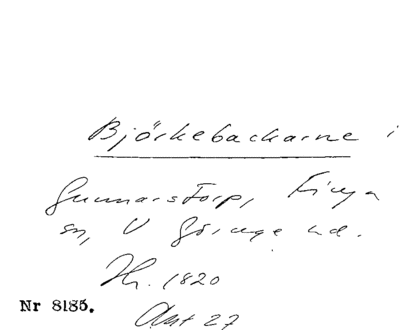 Björkebackarne i
Gunnarstorp, Finja
sn, V Göinge hd.
Hr. 1820
Nr 8185.
Akt 27